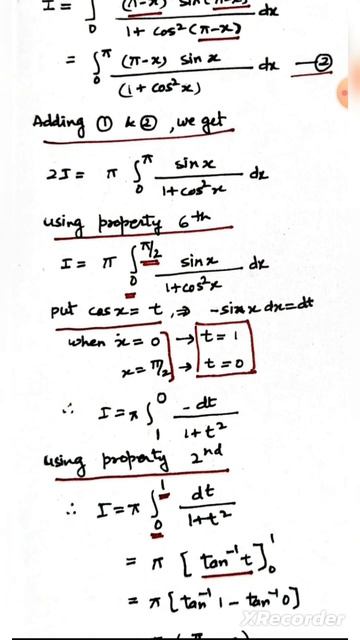 I = ∫₀ (π-x) sin(π-x) / 1 + cos²(π-x) dx
= ∫₀^π (π-x) sinx / (1 + cos²x) dx —②
Adding ① & ②, we get
2I = π ∫₀^π sinx / 1+cos²x dx
using property 6th
I = π ∫₀^π/2 sinx / 1+cos²x dx
put cosx = t, ⇒ -sinx dx = dt
when x = 0 → t = 1
x = π/2 → t = 0
∴ I = π ∫₁⁰ -dt / 1+t²
using property 2nd
∴ I = π ∫₀¹ dt / 1+t²
= π [tan⁻¹t]₀¹
= π[tan⁻¹1 - tan⁻¹0]
XRecorder